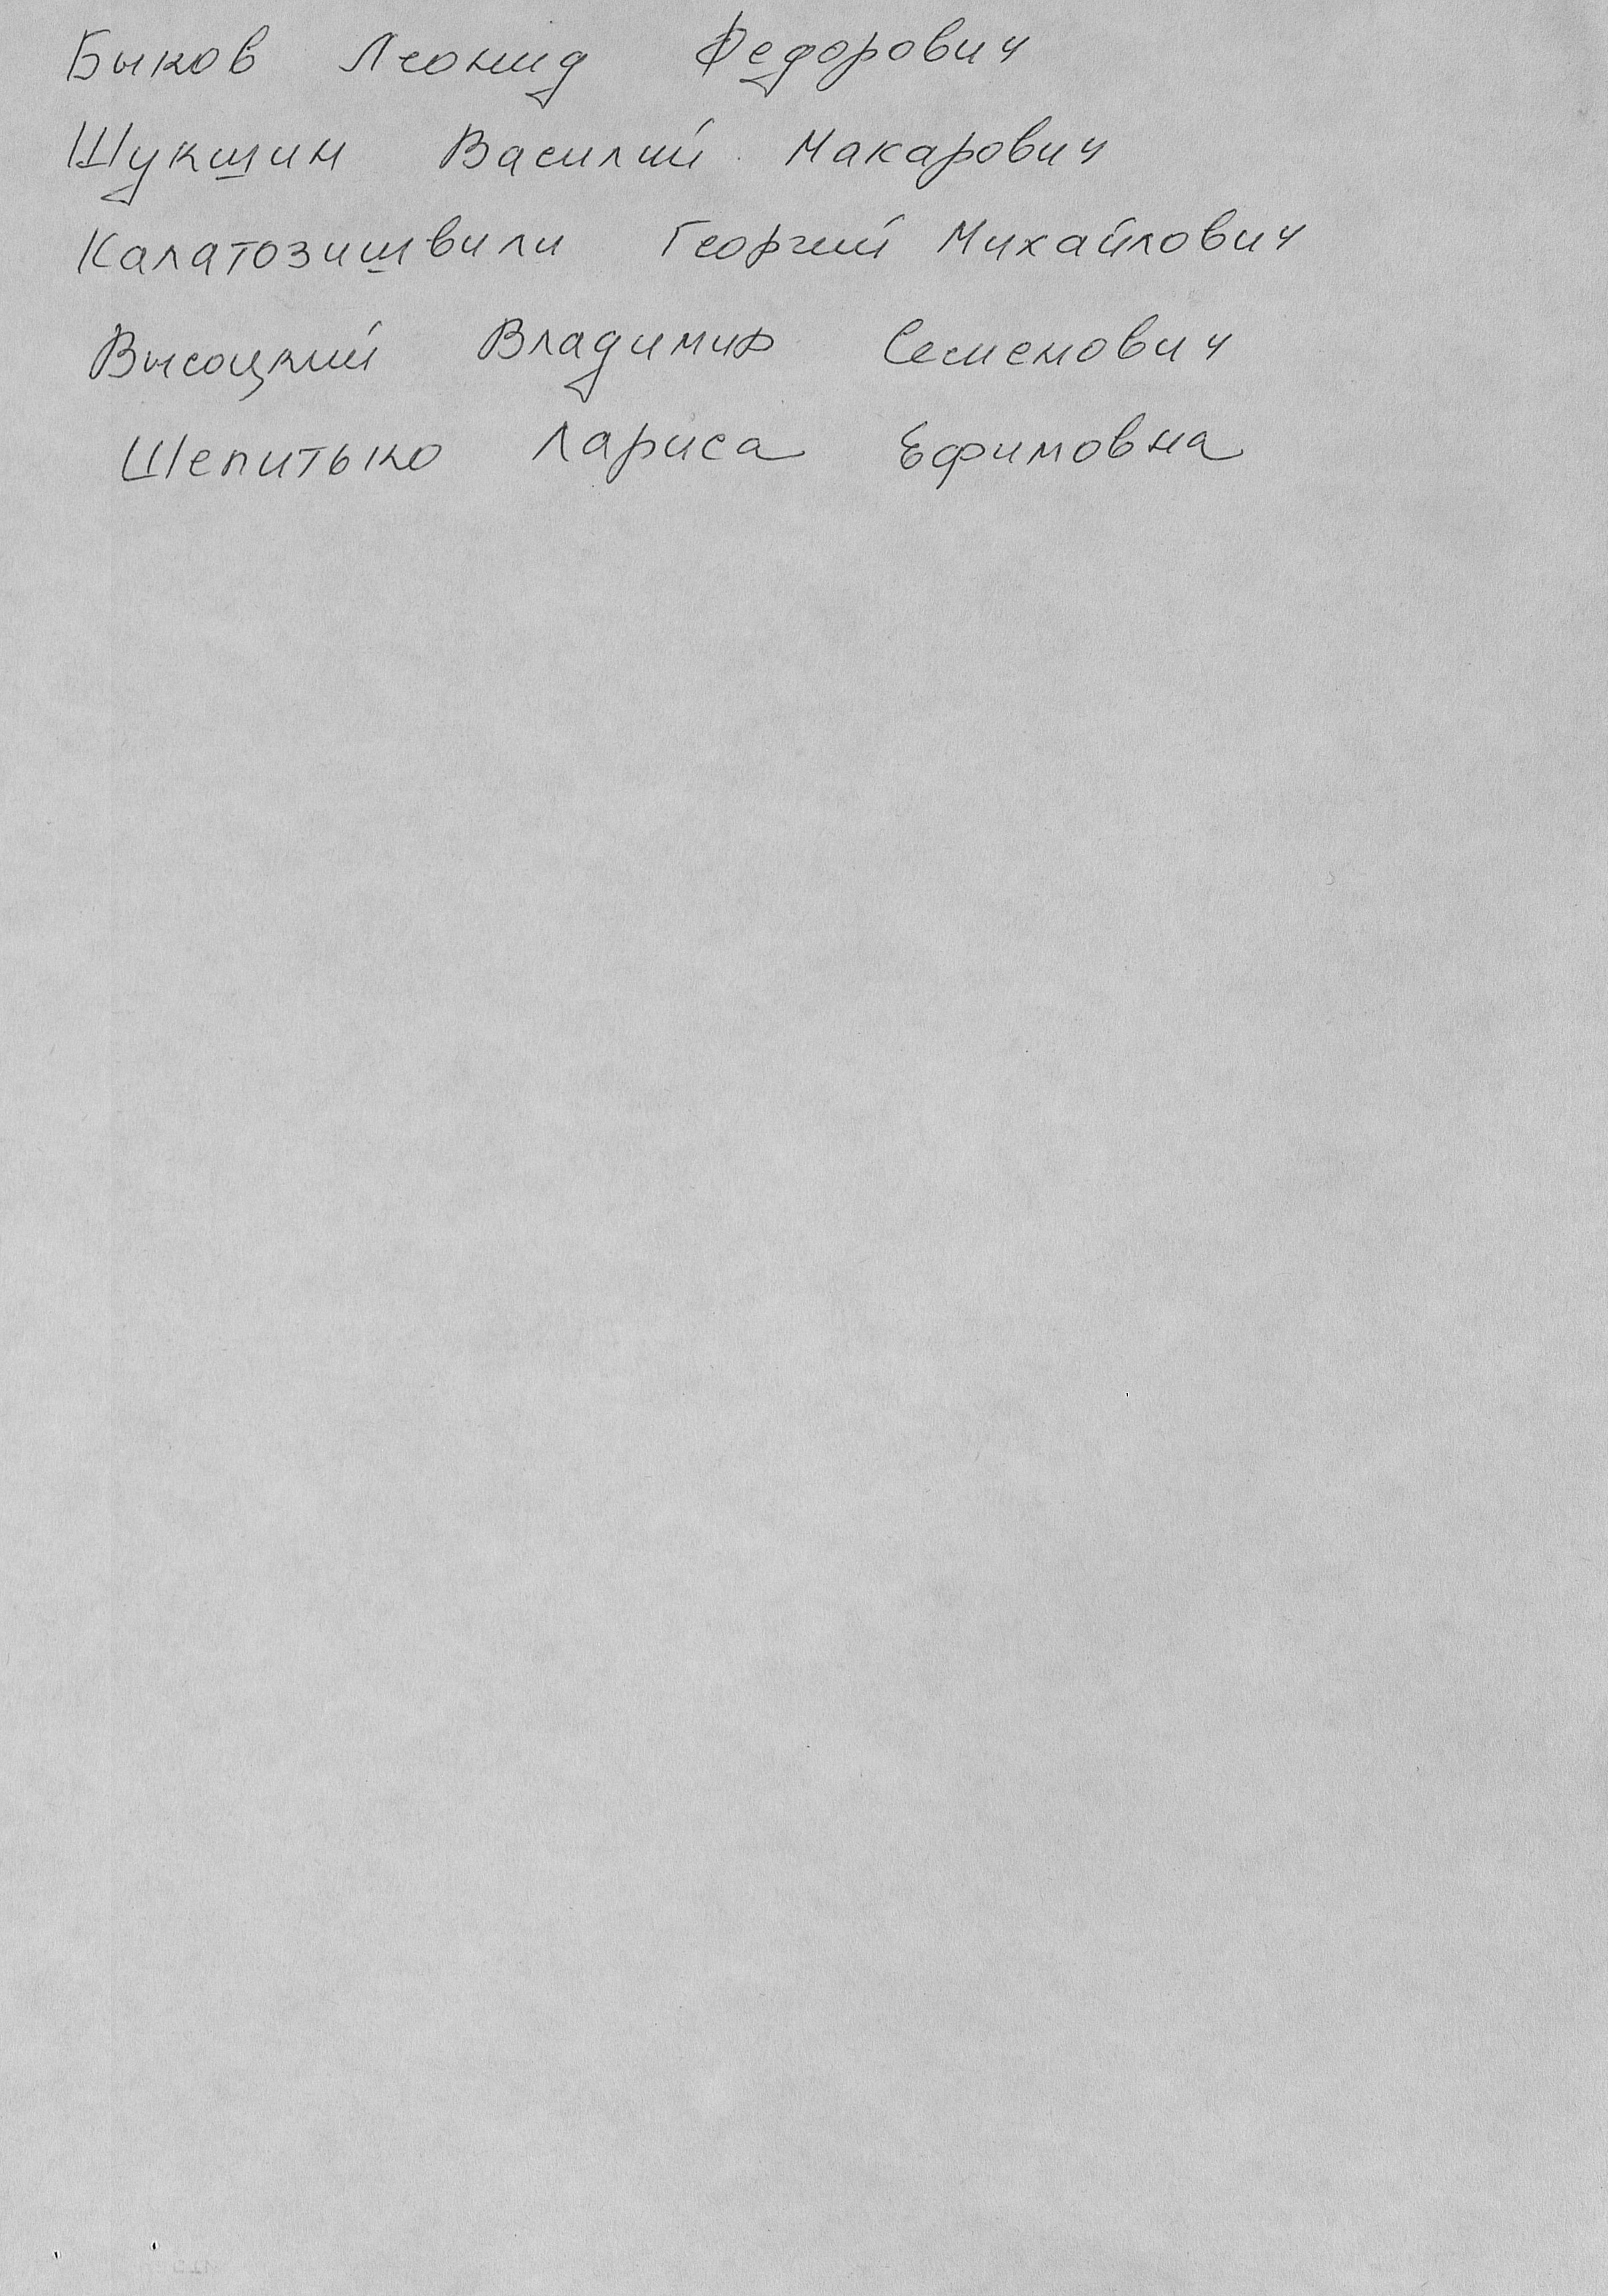 Быков Леонид Федорович
Шукшин Василий Макарович
Калатозишвили Георгий Михайлович
Высоцкий Владимир Семенович
Шепитько Лариса Ефимовна